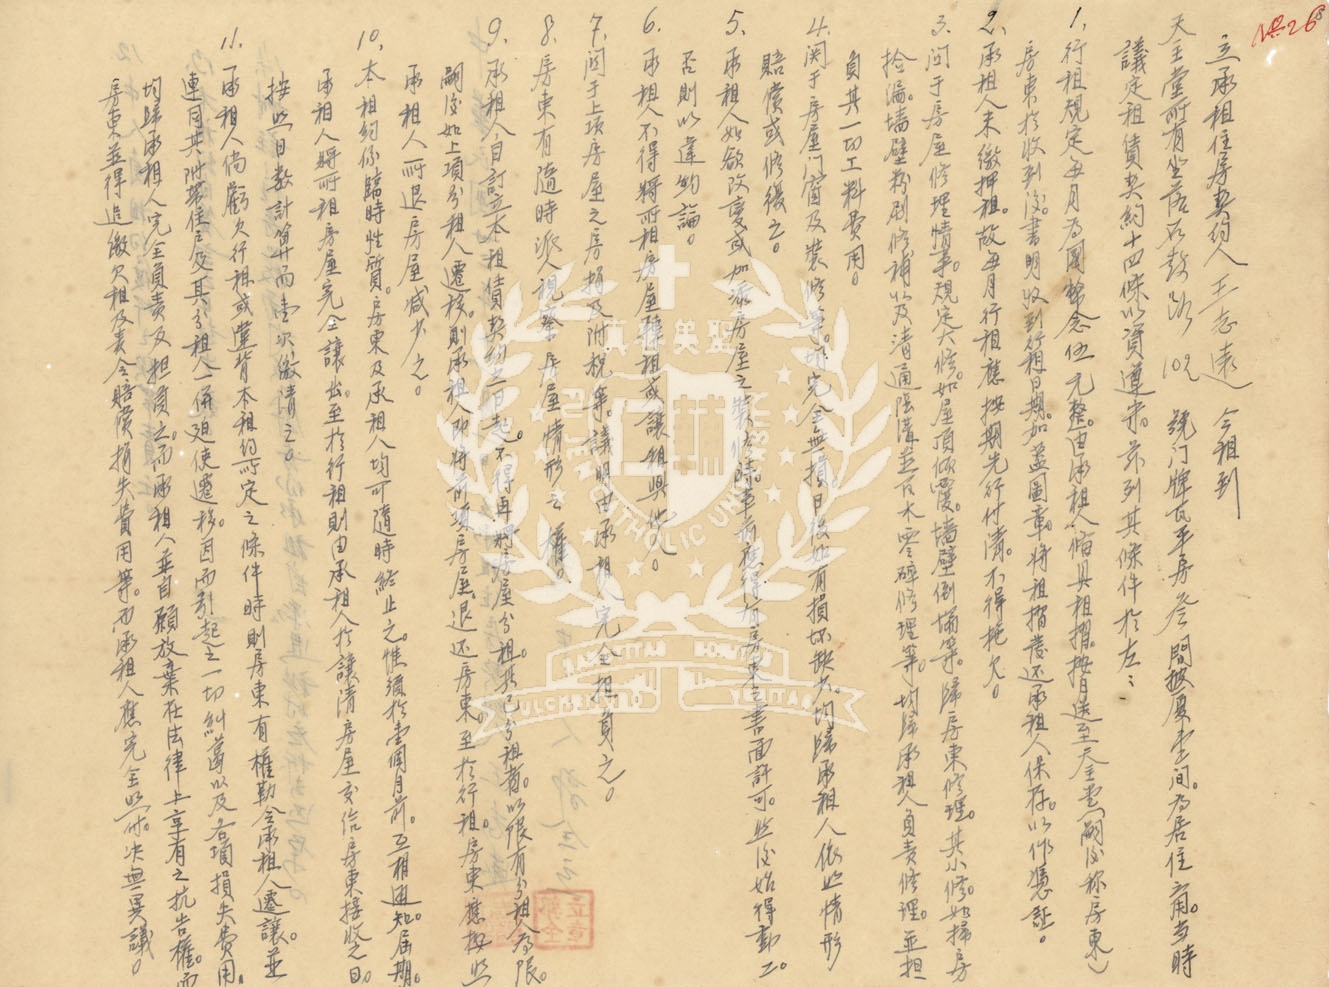 No 26
立承租住房契約人王志遠 今租到
天主堂所有坐落石鼓路 102 號門牌瓦平房叁間披廈壹间。為居住之用。當時
議定租賃契約十四條以資遵守。茲列其條件於左：
1. 行租規定每月為國幣念伍元整。由承租人備具租摺。按月送至天主堂（嗣後称房東）
房東於收到後。書明收到行租日期。加蓋圖章。將租摺發还承租人保存。以作憑証。
2. 承租人未繳押租。故每月行租應按期先行付清。不得拖欠。
3. 関于房屋修理情事。規定大修。如屋頂傾覆。墻壁倒塌等。歸房東修理。其小修。如掃房
捡漏。墻壁粉刷修補。以及清通陰溝並瓦木零碎修理等。均歸承租人負責修理。並担
負其一切工料費用。
4. 関于房屋门窗及裝修等。均完全無損。日後如有損坏缺少。均歸承租人依照情形
賠償或修復之。
5. 承租人如欲改变或加添房屋之裝修時。事前應得有房東之書面許可。然後始得動工。
否則以違約論。
6. 承租人不得將所租房屋轉租或讓租與他人。
7. 関于上項房屋之房捐及附税等。議明由承租人完全担負之。
8. 房東有隨時派人視察房屋情形之權。
9. 承租人自訂立本租賃契約之日起。不得再將房屋分租。其已分租者。以限有分租人為限。
嗣後如上項分租人遷移。則承租人即將前項房屋退还房東。至於行租。房東應按照
承租人所退房屋減少之。
10. 本租約係臨時性質。房東及承租人均可隨時終止之。惟須於壹個月前。互相通知。届期。
承租人將所租房屋完全讓出。至於行租則由承租人於讓清房屋交给房東接收之日。
按照日数計算而壹次繳清之。
11. 承租人倘虧欠行租或違背本租約所定之條件時則房東有權勒令承租人遷讓並
連同其附帶住户及其分租人一併迫使遷移。因而引起之一切糾葛以及各項損失費用。
均歸承租人完全負責及担負之。而承租人並自願放棄在法律上享有之抗告權。而
房東並得追繳欠租及責令賠償損失費用等。而承租人應完全照付。决無異議。